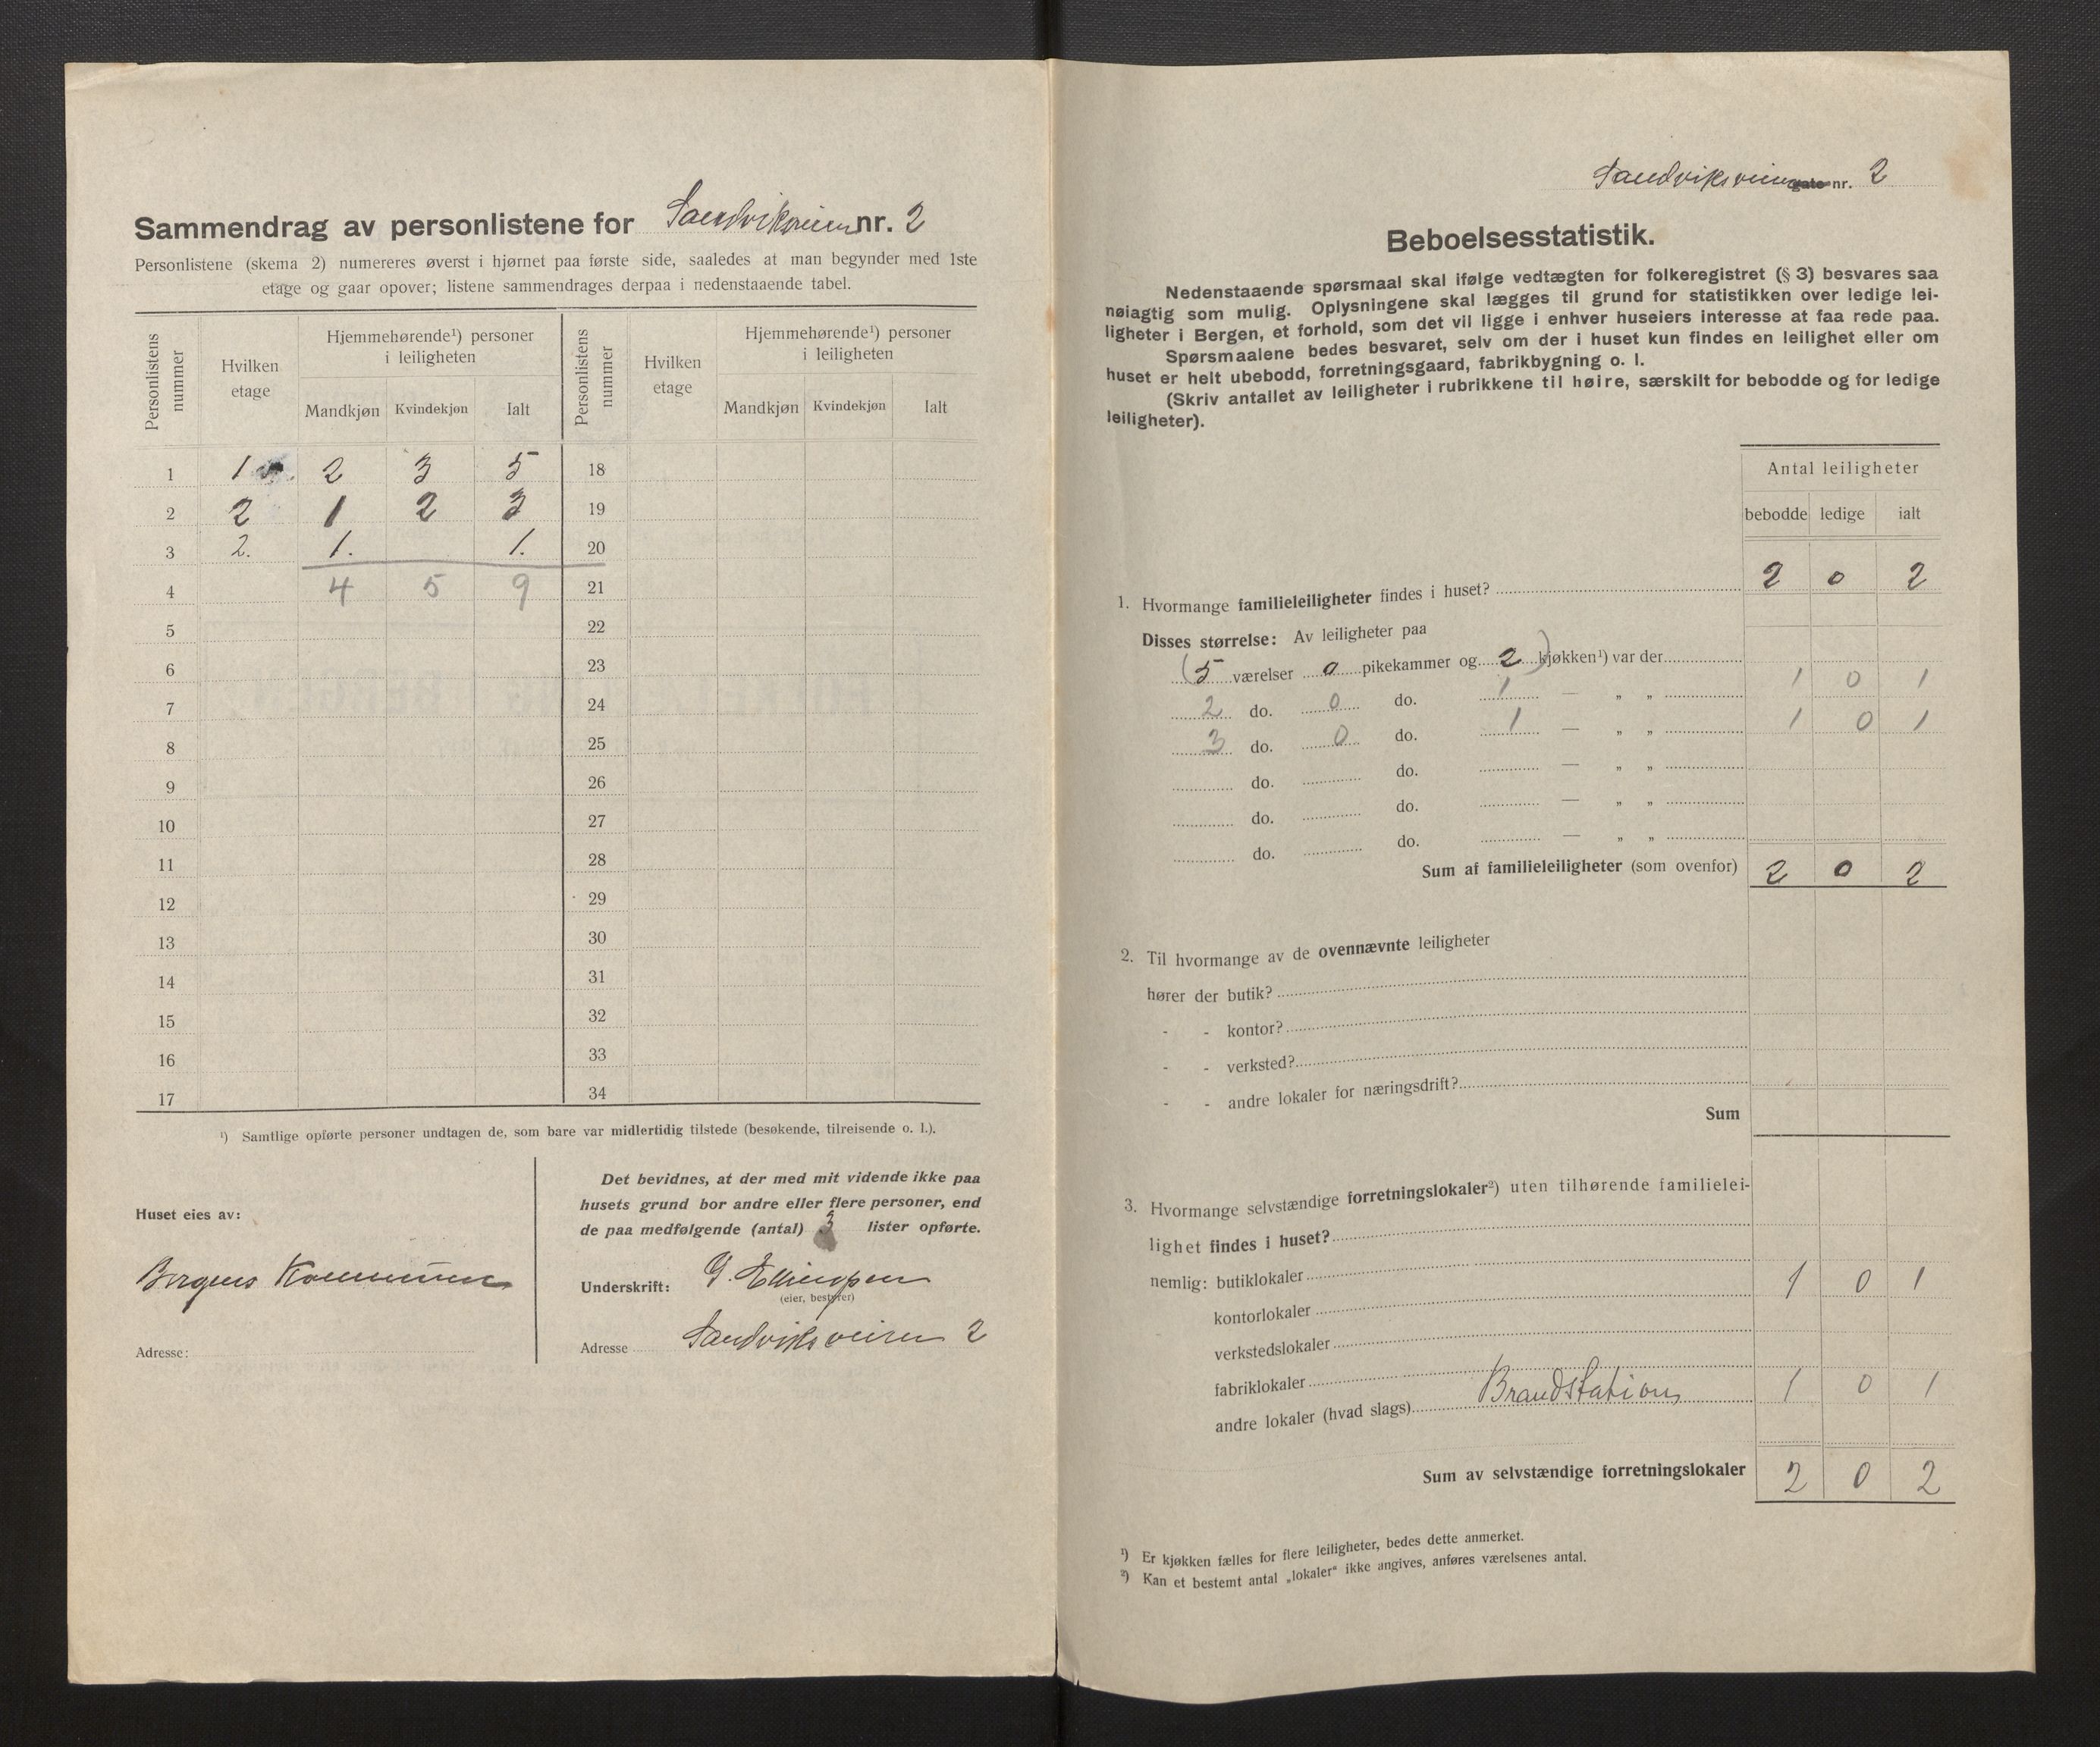 Sammendrag av personlistene for Sandviksveien nr. 2
Personlistene (skema 2) numereres øverst i hjørnet paa første side, saaledes at man begynder med 1ste
etage og gaar opover; listene sammendrages derpaa i nedenstaaende tabel.
Personlistens nummer
Hvilken etage
Hjemmehørende¹) personer i leiligheten
Mandkjøn Kvindekjøn Ialt
Personlistens nummer
Hvilken etage
Hjemmehørende¹) personer i leiligheten
Mandkjøn Kvindekjøn Ialt
1 1 2 3 5 18
2 2 1 2 3 19
3 2. 1. 1. 20
4 4 5 9 21
5 22
6 23
7 24
8 25
9 26
10 27
11 28
12 29
13 30
14 31
15 32
16 33
17 34
¹) Samtlige opførte personer undtagen de, som bare var midlertidig tilstede (besøkende, tilreisende o. l.).
Huset eies av:
Bergens Kommune
Adresse:
Det bevidnes, at der med mit vidende ikke paa
husets grund bor andre eller flere personer, end
de paa medfølgende (antal) 3 lister opførte.
Underskrift: G. Ellingsen
(eier, bestyrer)
Adresse Sandviksveien 2
Sandviksveien gate nr. 2
Beboelsesstatistik.
Nedenstaaende spørsmaal skal ifølge vedtægten for folkeregistret (§ 3) besvares saa
nøiagtig som mulig. Oplysningene skal lægges til grund for statistikken over ledige lei-
ligheter i Bergen, et forhold, som det vil ligge i enhver huseiers interesse at faa rede paa.
Spørsmaalene bedes besvaret, selv om der i huset kun findes en leilighet eller om
huset er helt ubebodd, forretningsgaard, fabrikbygning o. l.
(Skriv antallet av leiligheter i rubrikkene til høire, særskilt for bebodde og for ledige
leiligheter).
Antal leiligheter
bebodde ledige ialt
1. Hvormange familieleiligheter findes i huset? 2 0 2
Disses størrelse: Av leiligheter paa
(5 værelser 0 pikekammer og 2) kjøkken¹) var der
2 do. 0 do. 1 — „ „ 1 0 1
3 do. 0 do. 1 — „ „ 1 0 1
do. do. — „ „
do. do. — „ „
do. do. — „ „
Sum af familieleiligheter (som ovenfor) 2 0 2
2. Til hvormange av de ovennævnte leiligheter
hører der butik?
- - kontor?
- - verksted?
- - andre lokaler for næringsdrift?
Sum
3. Hvormange selvstændige forretningslokaler²) uten tilhørende familielei-
lighet findes i huset?
nemlig: butiklokaler 1 0 1
kontorlokaler
verkstedslokaler
fabriklokaler
andre lokaler (hvad slags) Brandstation 1 0 1
Sum av selvstændige forretningslokaler 2 0 2
¹) Er kjøkken fælles for flere leiligheter, bedes dette anmerket.
²) Kan et bestemt antal „lokaler“ ikke angives, anføres værelsenes antal.